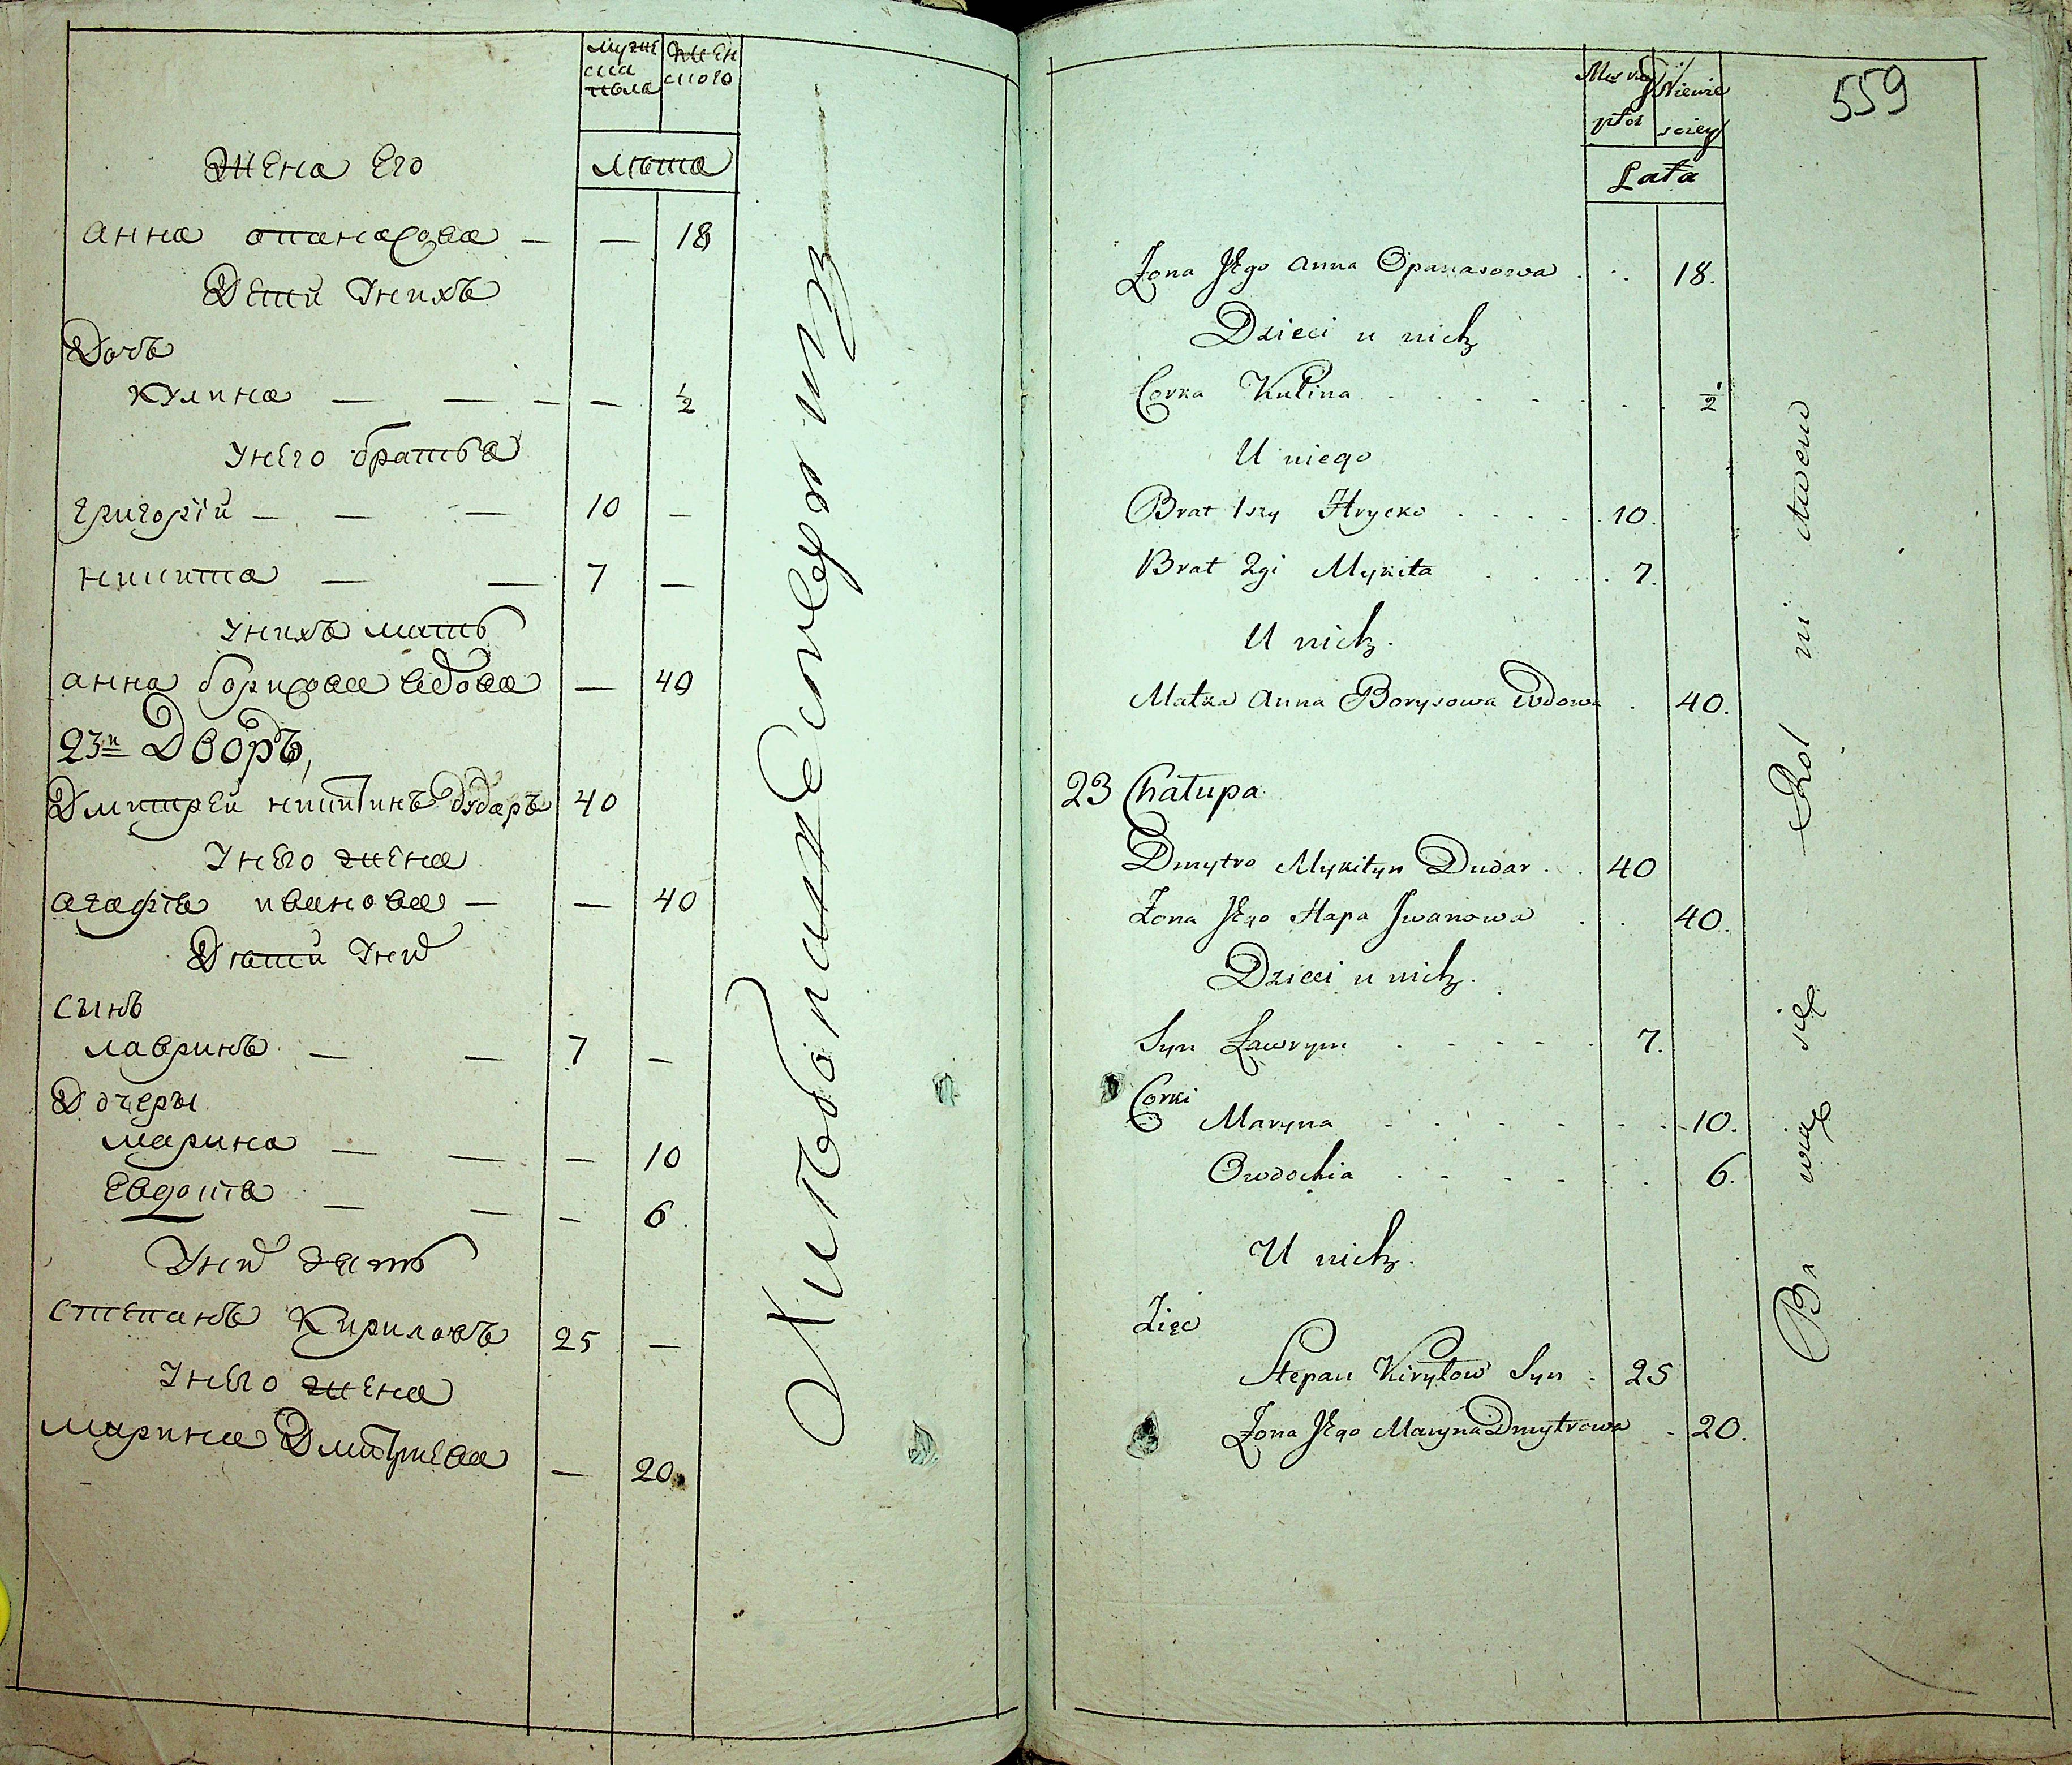 муже
ска
пола
жен
ского
лѣта
Жена Его
анна опанасова — — 18
Дети Унихъ
Дочь
кулина — — — — ½
Унего братья
григорій — — — 10 —
никита — — 7 —
Унихъ мать
анна борисова вдова — 40
23й Дворъ,
Дмитрей никитинъ дударъ 40
Унего жена
агафія иванова — — 40
Дѣти Унихъ
Сынъ
лавринъ — — 7 —
Дочеры
марина — — — 10
Евдокия — — — 6
Унихъ зять
степанъ Кириловъ 25 —
Унего жена
марина Дмитриева — 20
559
Męzkiej
płci
Niewie
sciey
Lata
Zona Jego Anna Opanasowa . . 18.
Dzieci u nich
Corka Kulina . . . . . . ½
U niego
Brat 1szy Hrycko . . . . . 10.
Brat 2gi Mykita . . . . 7.
U nich.
Matka Anna Borysowa Wdowa . 40.
23 Chałupa.
Dmytro Mykityn Dudar . . 40
Zona Jego Hapa Jwanowa . . 40.
Dzieci u nich.
Syn Ławryn . . . . . 7.
Corki
Maryna . . . . . . 10.
Owdochia . . . . . . 6.
U nich.
Zięc
Stepan Kiryłow Syn . 25
Zona Jego Maryna Dmytrowa . 20.